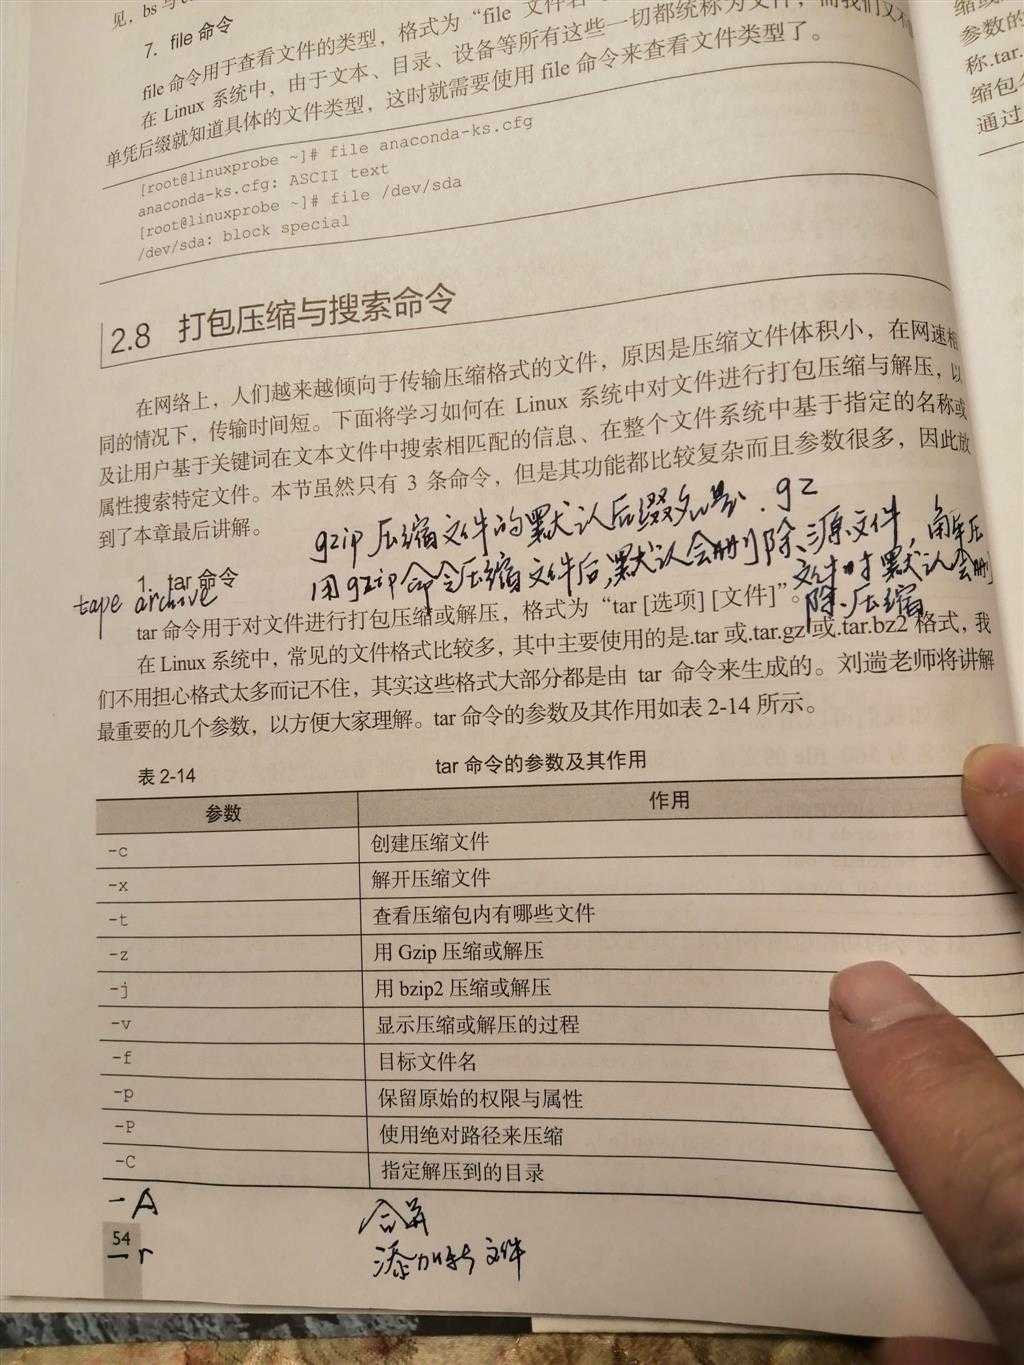 见，bs 与
7. file 命令
file 命令用于查看文件的类型，格式为“file 文件名
在 Linux 系统中，由于文本、目录、设备等所有这些一切都统称为文件，而我们又不
单凭后缀就知道具体的文件类型，这时就需要使用 file 命令来查看文件类型了。
[root@linuxprobe ~]# file anaconda-ks.cfg
anaconda-ks.cfg: ASCII text
[root@linuxprobe ~]# file /dev/sda
/dev/sda: block special
2.8 打包压缩与搜索命令
在网络上，人们越来越倾向于传输压缩格式的文件，原因是压缩文件体积小，在网速相
同的情况下，传输时间短。下面将学习如何在 Linux 系统中对文件进行打包压缩与解压，以
及让用户基于关键词在文本文件中搜索相匹配的信息、在整个文件系统中基于指定的名称或
属性搜索特定文件。本节虽然只有 3 条命令，但是其功能都比较复杂而且参数很多，因此放
到了本章最后讲解。
gzip 压缩文件的默认后缀名是 .gz
用 gzip 命令压缩文件后，默认会删除源文件，解压
文件时默认会删
除压缩
1. tar 命令
tape archive
tar 命令用于对文件进行打包压缩或解压，格式为“tar [选项] [文件]”。
在 Linux 系统中，常见的文件格式比较多，其中主要使用的是.tar 或.tar.gz 或.tar.bz2 格式，我
们不用担心格式太多而记不住，其实这些格式大部分都是由 tar 命令来生成的。刘遄老师将讲解
最重要的几个参数，以方便大家理解。tar 命令的参数及其作用如表 2-14 所示。
表 2-14 tar 命令的参数及其作用
参数 作用
-c 创建压缩文件
-x 解开压缩文件
-t 查看压缩包内有哪些文件
-z 用 Gzip 压缩或解压
-j 用 bzip2 压缩或解压
-v 显示压缩或解压的过程
-f 目标文件名
-p 保留原始的权限与属性
-P 使用绝对路径来压缩
-C 指定解压到的目录
-A 合并
54
-r 添加新文件
参数的
称.tar.
缩包
通过